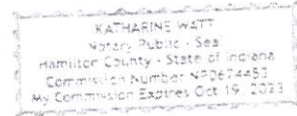 KATHARINE WATT
Notary Public - Seal
Hamilton County - State of Indiana
Commission Number NP0674453
My Commission Expires Oct 19, 2023